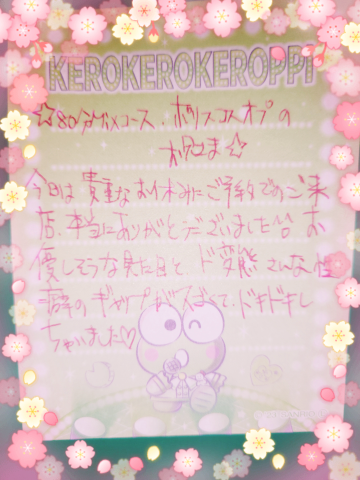 KEROKEROKEROPPI
☆80分デメコース、ポリスコスオプの
お兄さま☆
今日は貴重なお休みにご予約でのご来
店、本当にありがとうございました!! お
優しそうな見た目と、ド変態さんな性
癖のギャップがスゴくて、ドキドキし
ちゃいました♡